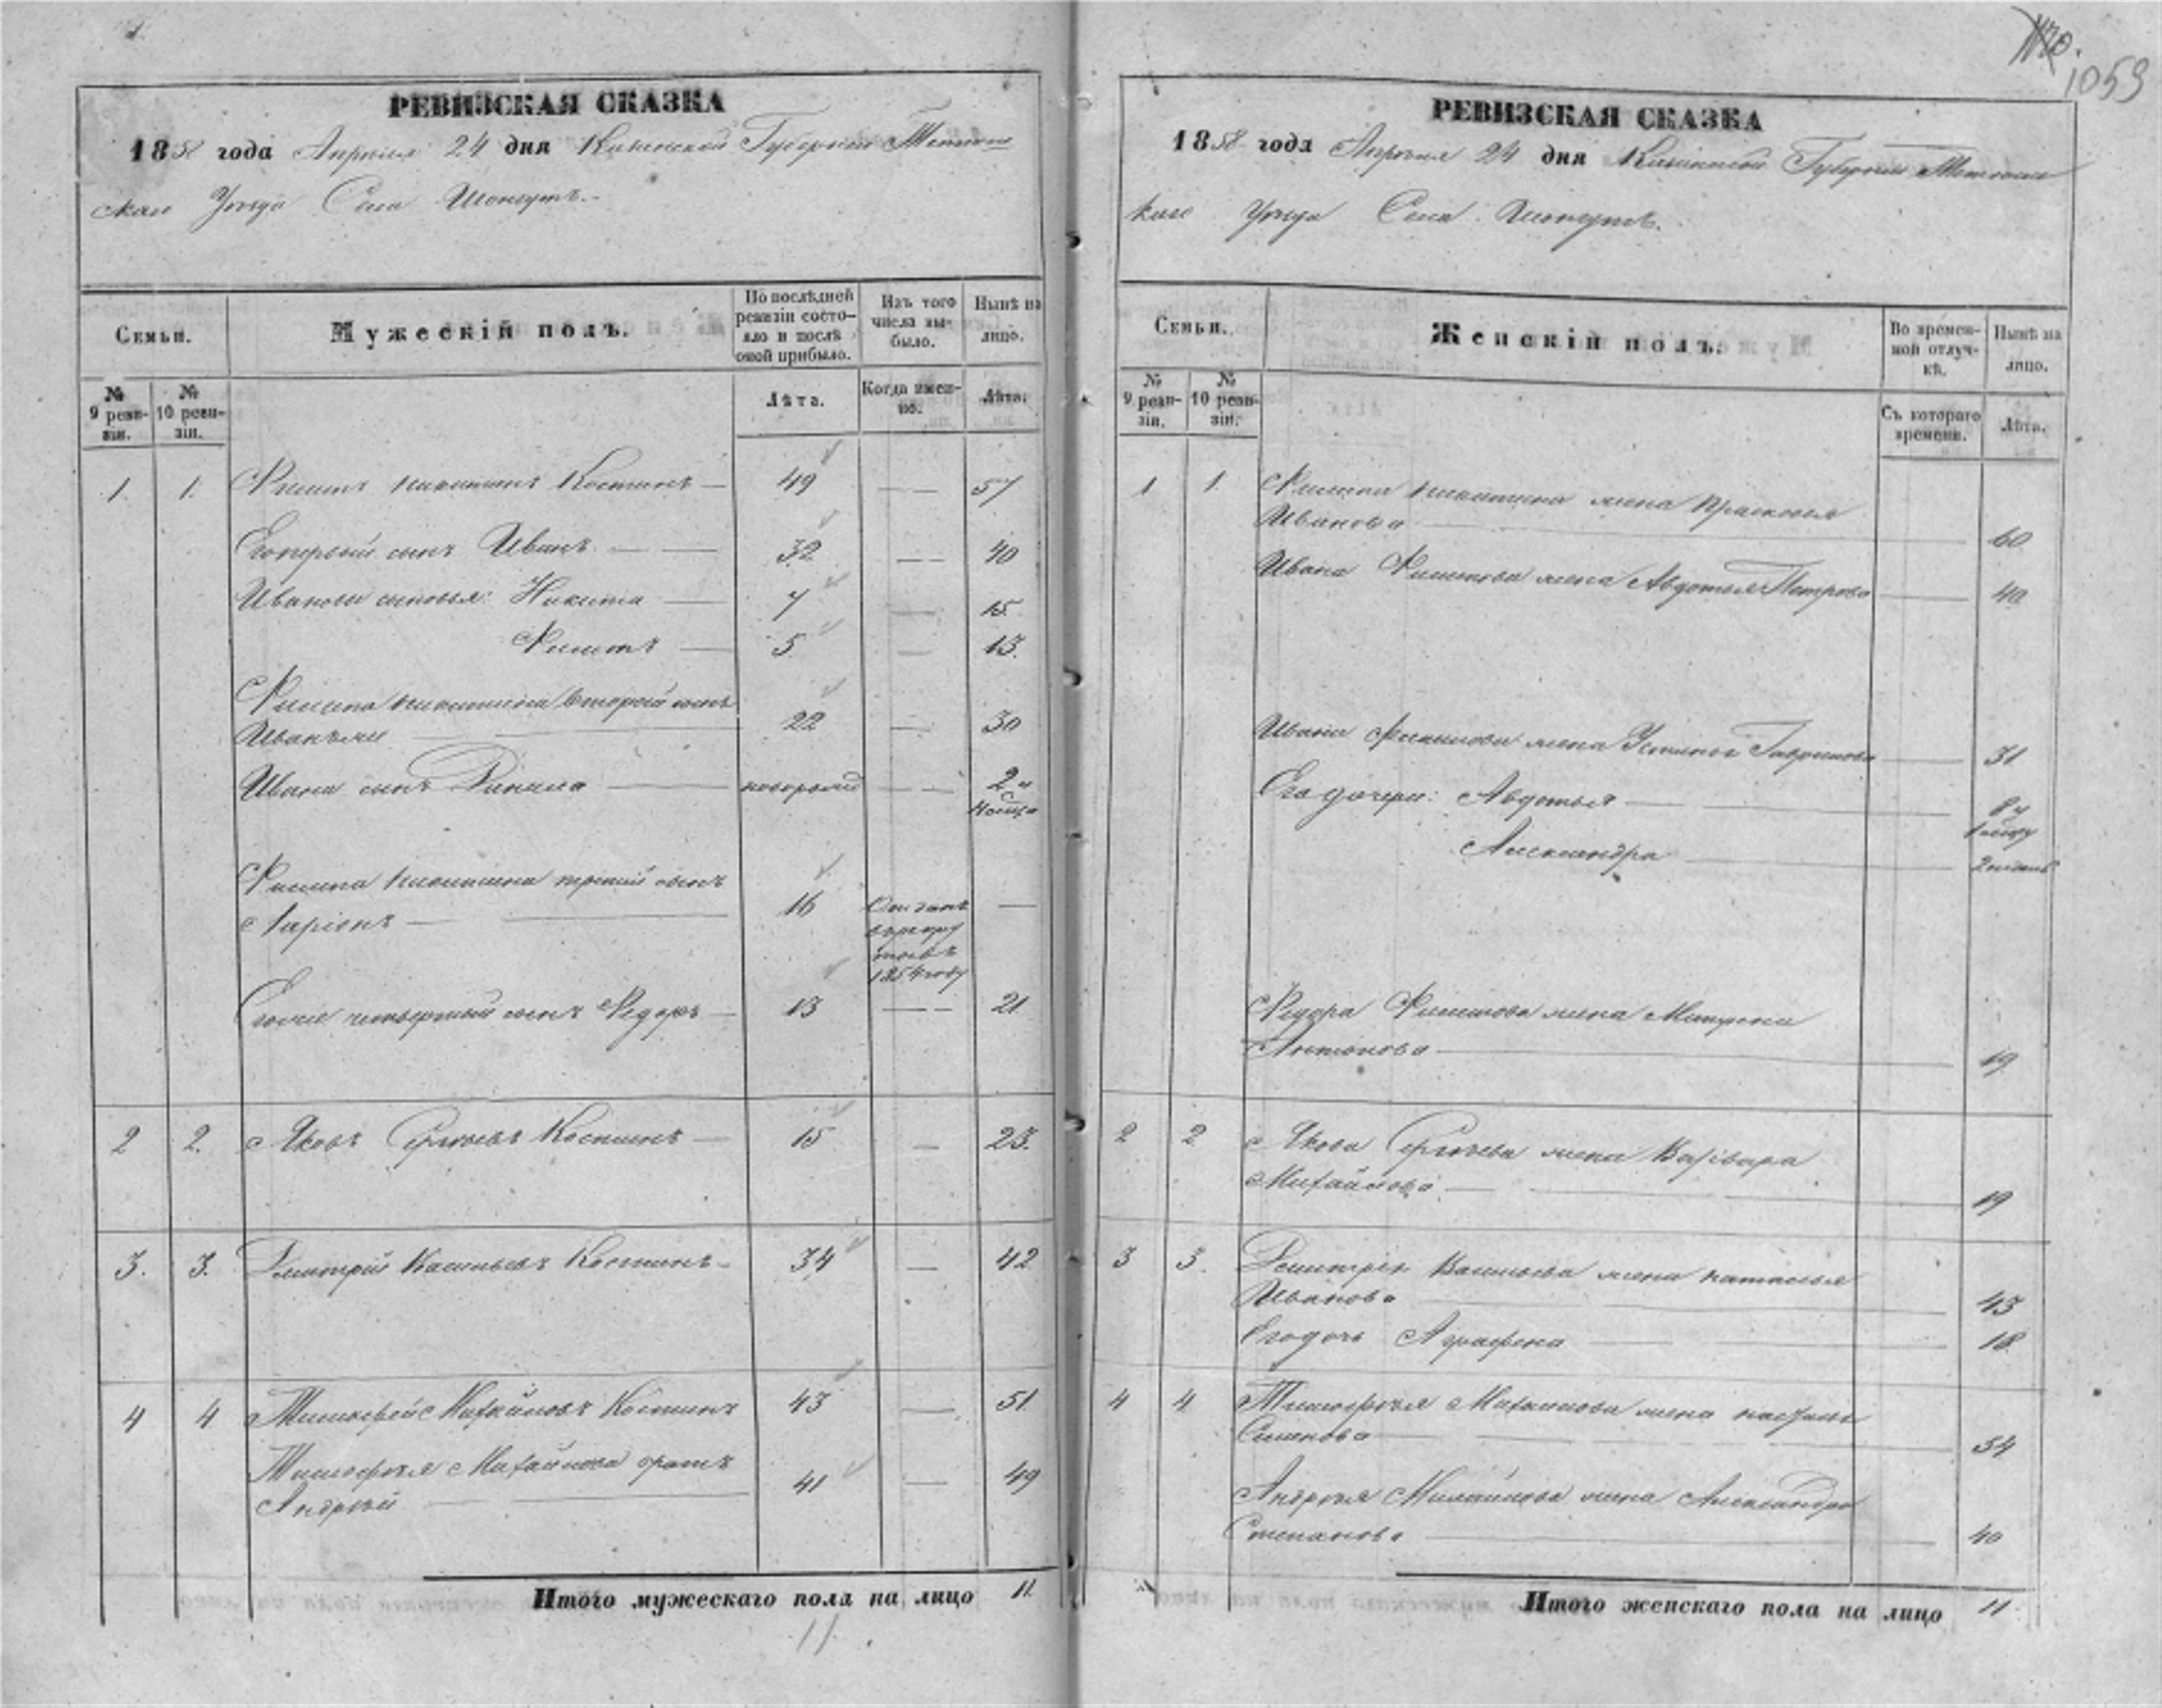 1059
РЕВИЗСКАЯ СКАЗКА
1858 года Апреля 24 дня Казанской Губерніи Тетюш
скаго Уезда Села
Семьи.
Мужескій полъ.
По послѣдней ревизіи состояло и послѣ оной прибыло.
Изъ того числа выбыло.
Нынѣ на лицо.
№ 9 ревизіи.
№ 10 ревизіи.
Лѣта.
Когда именно.
Лѣта.
1. 1. Филипъ Никитинъ Костинъ — 49 — — 57
Его первый сынъ Иванъ — — 32 — — 40
Ивановы сыновья: Никита — 7 — 15
Филипъ — 5 — 13.
Филипа Никитина второй сынъ
Иванъ же — 22 — 30
Ивана сынъ Данила — новорожд — — 2
Филипа Никитина третий сынъ
Ларіонъ — 16 Отданъ —
въ рекруты въ
1854 году
Его же четвертый сынъ Федоръ — 13 — — 21
2 2. Яковъ Сергѣевъ Костинъ — 15 — 23.
3. 3. Дмитрій Васильевъ Костинъ — 34 — 42
4 4 Тимофей Михайловъ Костинъ 43 — 51
Тимофея Михайлова братъ
Андрей — 41 — 49
Итого мужескаго пола на лицо 11.
11.
РЕВИЗСКАЯ СКАЗКА
1858 года Апреля 24 дня Казанской Губерніи Тетюшс
каго Уезда Села
Семьи.
Женскій полъ.
Во временной отлучкѣ.
Нынѣ на лицо.
№ 9 ревизіи.
№ 10 ревизіи.
Съ котораго времени.
Лѣта.
1 1. Филипа Никитина жена Прасковья
Иванова — 60
Ивана Филипова жена Авдотья Петрова — 40
Ивана Филипова жена Устинья Гаврилова — 31
Его дочери: Авдотья — 8
Александра — 2
Федора Филипова жена Матрена
Антонова — 19
2 2 Якова Сергѣева жена Варвара
Михайлова — 19
3 3. Дмитрея Васильева жена Наталья
Иванова — 43
Его дочь Аграфена — 18
4 4 Тимофея Михайлова жена
— 54
Андрея Михайлова жена Александра
Степанова — 40
Итого женскаго пола на лицо 11